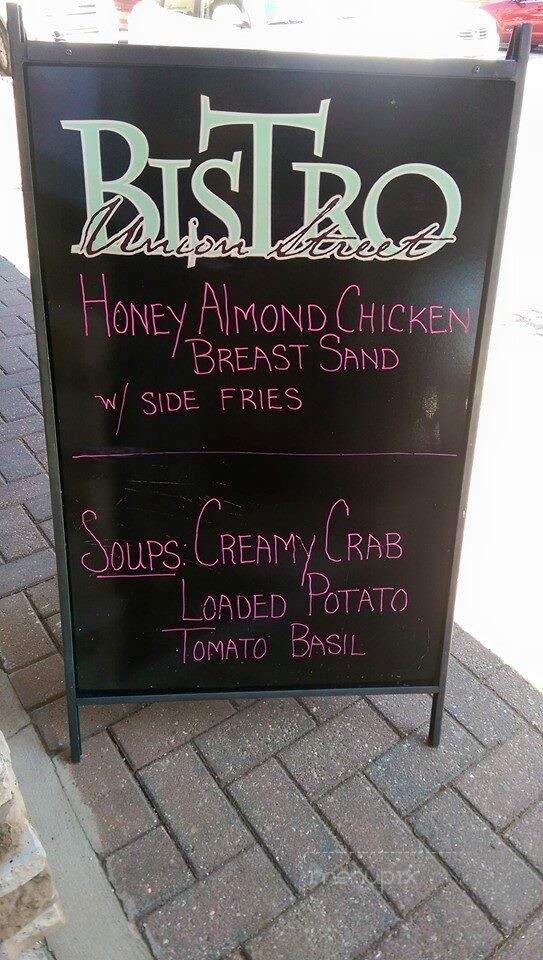 BISTRO
Union Street
HONEY ALMOND CHICKEN
BREAST SAND
W/ SIDE FRIES
SOUPS: CREAMY CRAB
LOADED POTATO
TOMATO BASIL
menupix